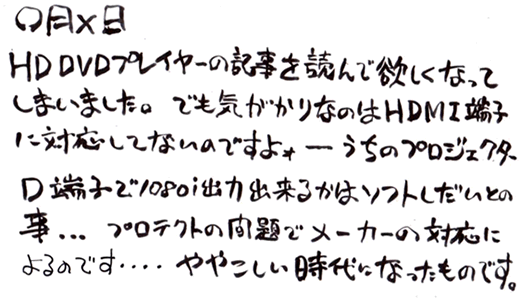 〇月×日
HD DVDプレイヤーの記事を読んで欲しくなって
しまいました。でも気がかりなのはHDMI端子
に対応してないのですよォーうちのプロジェクター
D端子で1080i出力出来るかはソフトしだいとの
事... プロテクトの問題でメーカーの対応に
よるのです‥‥ ややこしい時代になったものです。